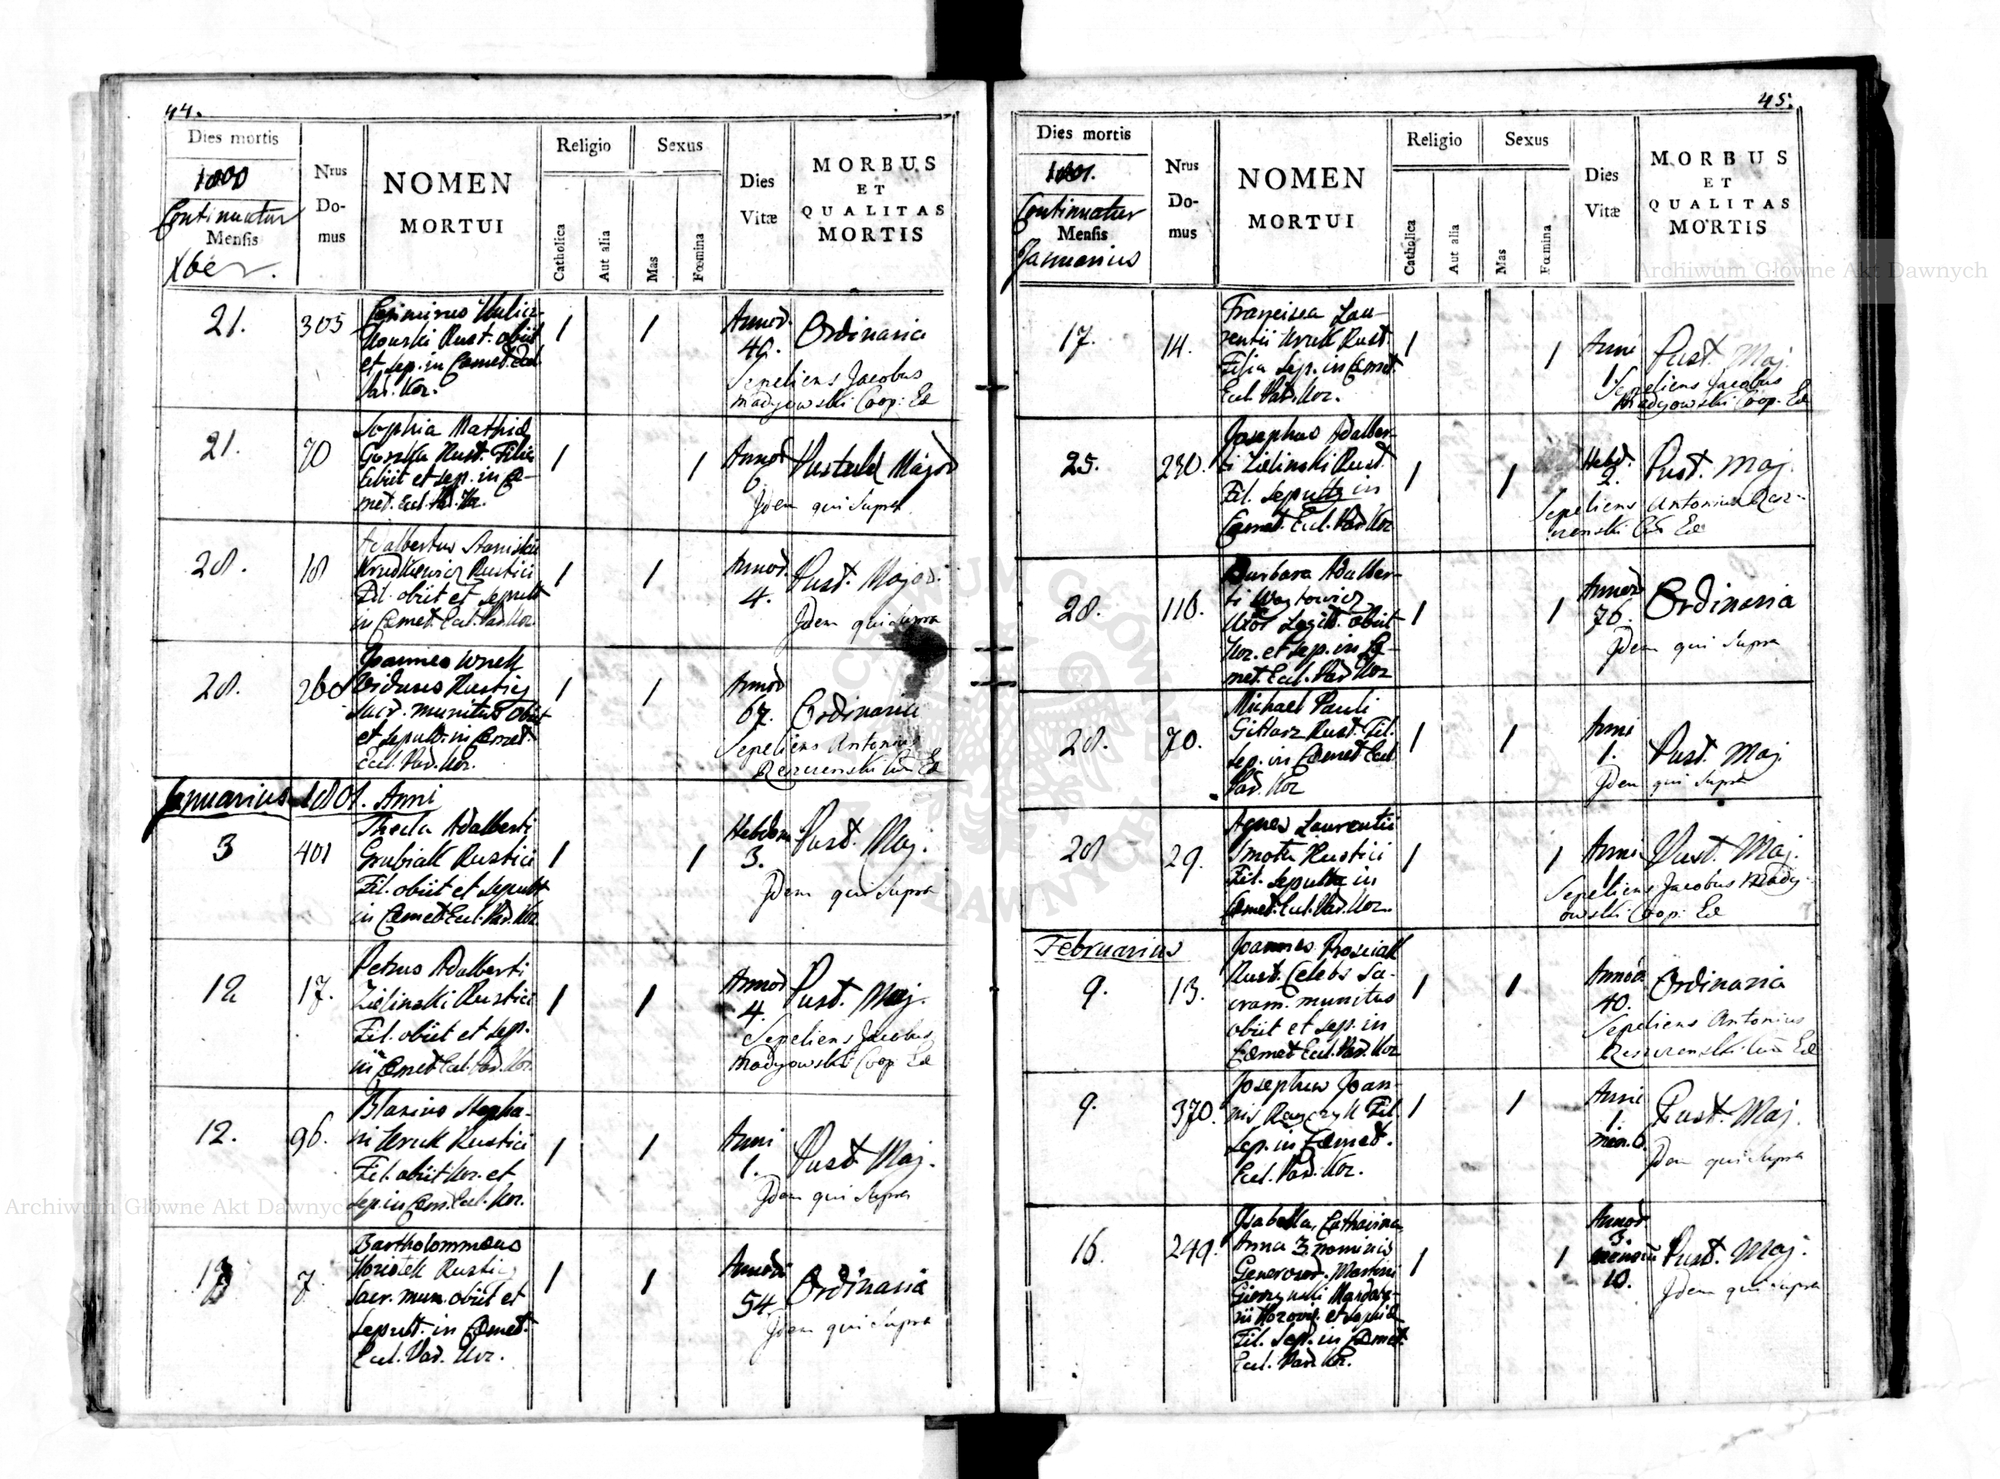 44.
Dies mortis
1800
Continuatur
Mensis
Xber.
Nrus
Do-
mus
NOMEN
MORTUI
Religio
Catholica
Aut alia
Sexus
Mas
Fœmina
Dies
Vitæ
MORBUS
ET
QUALITAS
MORTIS
21.
305
Casimirus
Rust. obiit
et sep. in Cœmet. Eccl.
Par. Kor.
1
1
Annor.
46.
Ordinaria
Sepeliens Jacobus
Madyowski Coop: Ec
21.
70
Sophia Mathiæ
Guzka Rust. Filia
obiit et sep. in Cœ-
met. Eccl. Par. Kor.
1
1
Annor
6.
Pustulæ Major
Idem qui Supra
28.
18
Adalbertus Stanislai
Krudkiewicz Rustici
Fil. obiit et sepult
in Cœmet. Eccl. Par. Kor.
1
1
Annor.
4.
Pust. Major.
Idem qui Supra
28.
260
Joannes Wnek
Viduus Rustic
Sacr. munitus obiit
et sepult. in Cœmet.
Eccl. Par. Kor.
1
1
Annor
67.
Ordinaria
Sepeliens Antonius
Rzeszrenski Cur Ec
Januarius 1801. Anni
3
401
Thecla Adalberti
Grubiak Rustici
Fil. obiit et sepult
in Cœmet. Eccl. Par. Kor
1
1
Hebdom
3.
Pust. Maj.
Idem qui Supra
12
17.
Petrus Adalberti
Zielinski Rustici
Fil. obiit et sep.
in Cœmet Eccl. Par. Kor.
1
1
Annor
4.
Pust. Maj.
Sepeliens Jacobus
Madyowski Coop Ec
12.
96.
Blasius Stepha-
ni Kruk Rustici
Fil. obiit Kor. et
sep. in Cœm. Eccl. Kor.
1
1
Anni
1.
Pust. Maj.
Idem qui Supra
7.
Bartholommæus
Rustic
Sacr. mun. obiit et
sepult. in Cœmet.
Eccl. Par. Kor.
1
1
Annor
54.
Ordinaria
Idem qui Supra
45.
Dies mortis
1801.
Continuatur
Mensis
Januarius
Nrus
Do-
mus
NOMEN
MORTUI
Religio
Catholica
Aut alia
Sexus
Mas
Fœmina
Dies
Vitæ
MORBUS
ET
QUALITAS
MORTIS
17.
14.
Francisca Lau-
rentii Kruk Rust.
Filia sep. in Cœmet.
Eccl. Par. Kor.
1
1
Anni
1.
Pust. Maj.
Sepeliens Jacobus
Madyowski Coop. Ec
25.
230.
Josephus Adalber-
ti Zielinski Rust.
Fil. Sepultg in
Cœmet. Eccl. Par. Kor
1
1
Hebd.
2.
Pust. Maj.
Sepeliens Antonius Rzesz-
renski Cur Ec
28.
116.
Barbara Adalber-
ti Woytowicz
Uxor Legit. obiit
Kor. et sep. in Cœ-
met. Eccl. Par. Kor
1
1
Annor
76.
Ordinaria
Idem qui Supra
28.
70.
Michael Pauli
Gittarz Rust. Fil.
sep. in Cœmet Eccl.
Par. Kor
1
1
Anni
1.
Pust. Maj.
Idem qui Supra
28
29.
Agnes Laurentii
Smota Rustici
Fil. sepulta in
Cœmet. Eccl. Par. Kor.
1
1
Anni
1
Pust. Maj.
Sepeliens Jacobus Mady-
owski Coop: Ec
Februarius
9.
13.
Joannes Prosciak
Rust. Celebs Sa-
cram. munitus
obiit et sep. in
Cœmet Eccl. Par. Kor
1
1
Annor
40.
Ordinaria
Sepeliens Antonius
Rzeszrenski Cur Ec
9.
370.
Josephus Joan-
nis Rayczyk Fil
Sep. in Cœmet.
Eccl. Par. Kor.
1
1
Anni
1.
men. 6.
Pust. Maj.
Idem qui Supra
16.
249.
Isabella, Catharina
Anna 3. nominis
Generosor. Martini
et Sophiæ
Fil. Sep. in Cœmet.
Eccl. Par. Kor.
1
1
Annor
3.
mensiū
10.
Pust. Maj.
Idem qui Supra
Archiwum Główne Akt Dawnych
Archiwum Główne Akt Dawnych
ARCHIWUM GŁÓWNE AKT DAWNYCH